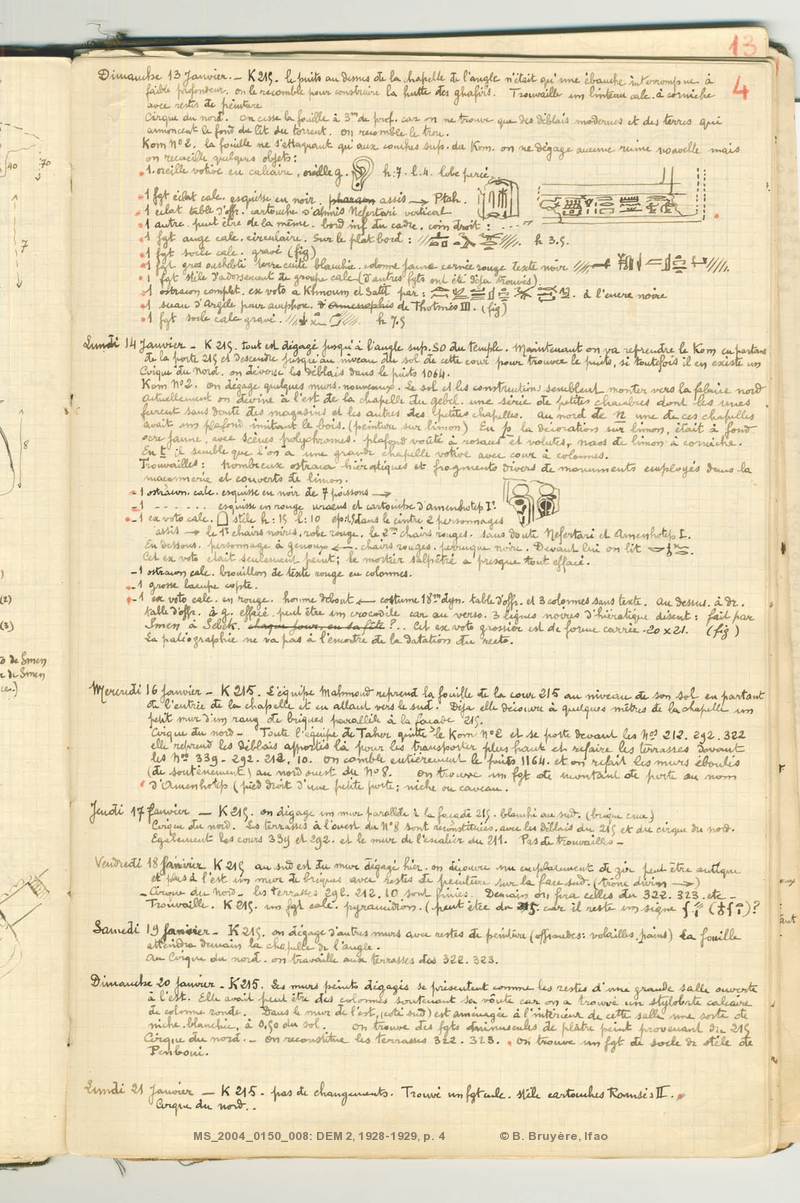 13
4
Dimanche 13 Janvier. – K 215. le puits au dessus de la chapelle de l'angle n'était qu'une ébauche interrompue à
faible profondeur. on le recomble pour construire la hutte des ghafirs. Trouvaille un linteau calc. à corniche
avec restes de peinture.
Cirque du nord. On cesse la fouille à 3m de prof. car on ne trouve que des déblais modernes et des terres qui
annoncent le fond du lit du torrent. on recomble le trou.
Kom N°2. la fouille ne s'attaquant qu'aux couches sup. du Kom. on ne dégage aucune ruine nouvelle mais
on recueille quelques objets:
1 oreille votive en calcaire, oreille g. h: 7. l. 4. lobe percé
1 fgt éclat calc. esquisse en noir. assis → Ptah.
1 éclat table d'offr. cartouche d'Ahmis Nefertari vertical
1 autre peut être de la même. bord inf. du cadre, coin droit:
1 fgt auge calc. circulaire. Sur le plat bord: h 3.5.
1 fgt socle calc. gravé (fig)
1 fgt gros oushebti terre cuite blanchie. colonne jaune cernée rouge texte noir
1 fgt stèle d'adossement de groupe calc (d'autres fgts ont été déja trouvés)
1 ostracon complet. ex voto à Khnoum et Satit par: à l'encre noire
1 sceau d'argile pour amphore. de Thotmès III. (fig)
1 fgt socle calc gravé. h 7,5
Lundi 14 Janvier – K 215. tout est dégagé jusqu'à l'angle sup. SO du temple. Maintenant on va reprendre le Kom en partant
de la porte 215 et descendre jusqu'au niveau du sol de cette cour pour trouver le puits, si toutefois il en existe un
Cirque du Nord. on déverse les déblais dans le puits 1064.
Kom N°2. on dégage quelques murs nouveaux. Le sol et les constructions semblent monter vers la falaise nord
actuellement on devine à l'est de la chapelle du gebel. une série de petites chambres dont les unes
furent sans doute des magasins et les autres des petites chapelles. Au nord de une de ces chapelles
avait un plafond imitant le bois. (peinture sur limon) En p la décoration sur limon, était à fond
ocre jaune, avec scènes polychromes. plafond voûté à rosaces et volutes, naos de limon à corniche.
En t il semble que l'on a une grande chapelle votive avec cour à colonnes.
Trouvailles: Nombreux ostraca hiératiques et fragments divers de monuments employés dans la
maçonnerie et couverts de limon.
– 1 ostracon. calc. esquisse en noir de 7 poissons →
– 1 – . . . . . esquisse en rouge uraeus et cartouche d'Amenhotep Ier
– 1 ex voto calc. stèle h: 15 l: 10 dans le cintre 2 personnages
assis → le 1er chairs noires, robe rouge. le 2me chairs rouges. sans doute Nefertari et Amenhotep I.
En dessous. personnage à genoux ←. chairs rouges. perruque noire. Devant lui on lit
Cet ex voto était seulement peint; le mortier salpêtré a presque tout effacé.
– 1 ostracon calc. brouillon de texte rouge en colonnes.
– 1 grosse lampe copte.
– 1 ex voto calc. en rouge. homme debout ← costume 18me dyn. table d'offr. et 3 colonnes sans texte. Au dessus. à dr.
table d'offr. à g. effacé peut être un crocodile car au verso. 3 lignes noires d'hiératique disent: fait par
Smen à Sebek. ?.. Cet ex voto grossier est de forme carrée. 20 x 21. (fig)
La paléographie ne va pas à l'encontre de la datation du recto.
Mercredi 16 Janvier – K 215. L'équipe Mahmoud reprend la fouille de la cour 215 au niveau de son sol en partant
de l'entrée de la chapelle et en allant vers le sud. Déja elle découvre à quelques mètres de la chapelle un
petit mur d'un rang de briques parallèle à la façade 215.
Cirque du nord – Toute l'équipe de Taher quitte le Kom N°2 et se porte devant les Nos 212. 292. 322
elle reprend les déblais apportés là pour les transporter plus haut et refaire les terrasses devant
les Nos 339 – 292. 212, 10. on comble entièrement le puits 1164. et on refait les murs éboulés
(de soutènement) au nord ouest du N°8. On trouve un fgt de montant de porte au nom
d'Amenhotep (pied droit d'une petite porte; niche ou caveau.
Jeudi 17 Janvier – K 215. on dégage un mur parallèle à la façade 215. blanchi au sud. (brique crue)
Cirque du nord. Les terrasses à l'ouest du N°8 sont reconstituées, avec les déblais du 215 et du cirque du nord.
Egalement les cours 339 et 292. et le mur de l'escalier du 211. Pas de trouvailles –
Vendredi 18 Janvier K 215 au sud est du mur dégagé hier. on découvre un emplacement de zir peut être antique
et puis à l'est un mur de briques avec restes de peinture sur la face sud. (trône divin →)
– Cirque du nord – les terrasses 292. 212. 10 sont finies. Demain on fera celles du 322. 323. etc –
Trouvaille. K 215. un fgt calc. pyramidion. (peut être du car il reste un signe ?
Samedi 19 Janvier – K 215. on dégage d'autres murs avec restes de peinture (offrandes: volailles, pains) La fouille
atteindra demain la chapelle de l'angle.
Au Cirque du nord. on travaille aux terrasses des 322. 323.
Dimanche 20 Janvier – K 215. Les murs peints dégagés se présentent comme les restes d'une grande salle ouverte
à l'est. Elle avait peut être des colonnes soutenant sa voûte car on a trouvé un stylobate calcaire
de colonne ronde. Dans le mur de l'est, (coté sud) est aménagée à l'intérieur de cette salle une sorte de
niche. blanchie, à 0,50 du sol. on trouve des fgts minuscules de plâtre peint provenant du 215
Cirque du nord. – On reconstitue les terrasses 322. 323. on trouve un fgt de socle de stèle de
Penboui.
Lundi 21 Janvier – K 215. pas de changements. Trouvé un fgt calc. stèle cartouches Ramsès II.
Cirque du nord..
MS_2004_0150_008: DEM 2, 1928-1929, p. 4 © B. Bruyère, Ifao